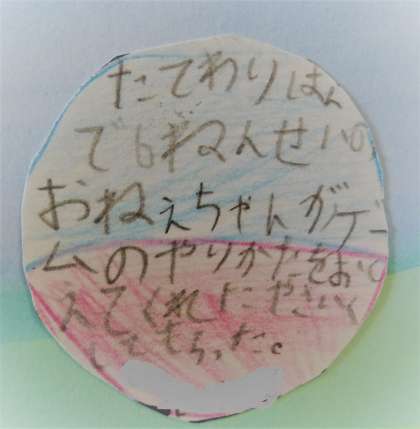 たてわりはん
で6ねんせいの
おねえちゃんがゲー
ムのやりかたをおし
えてくれたやさしく
してもらった。